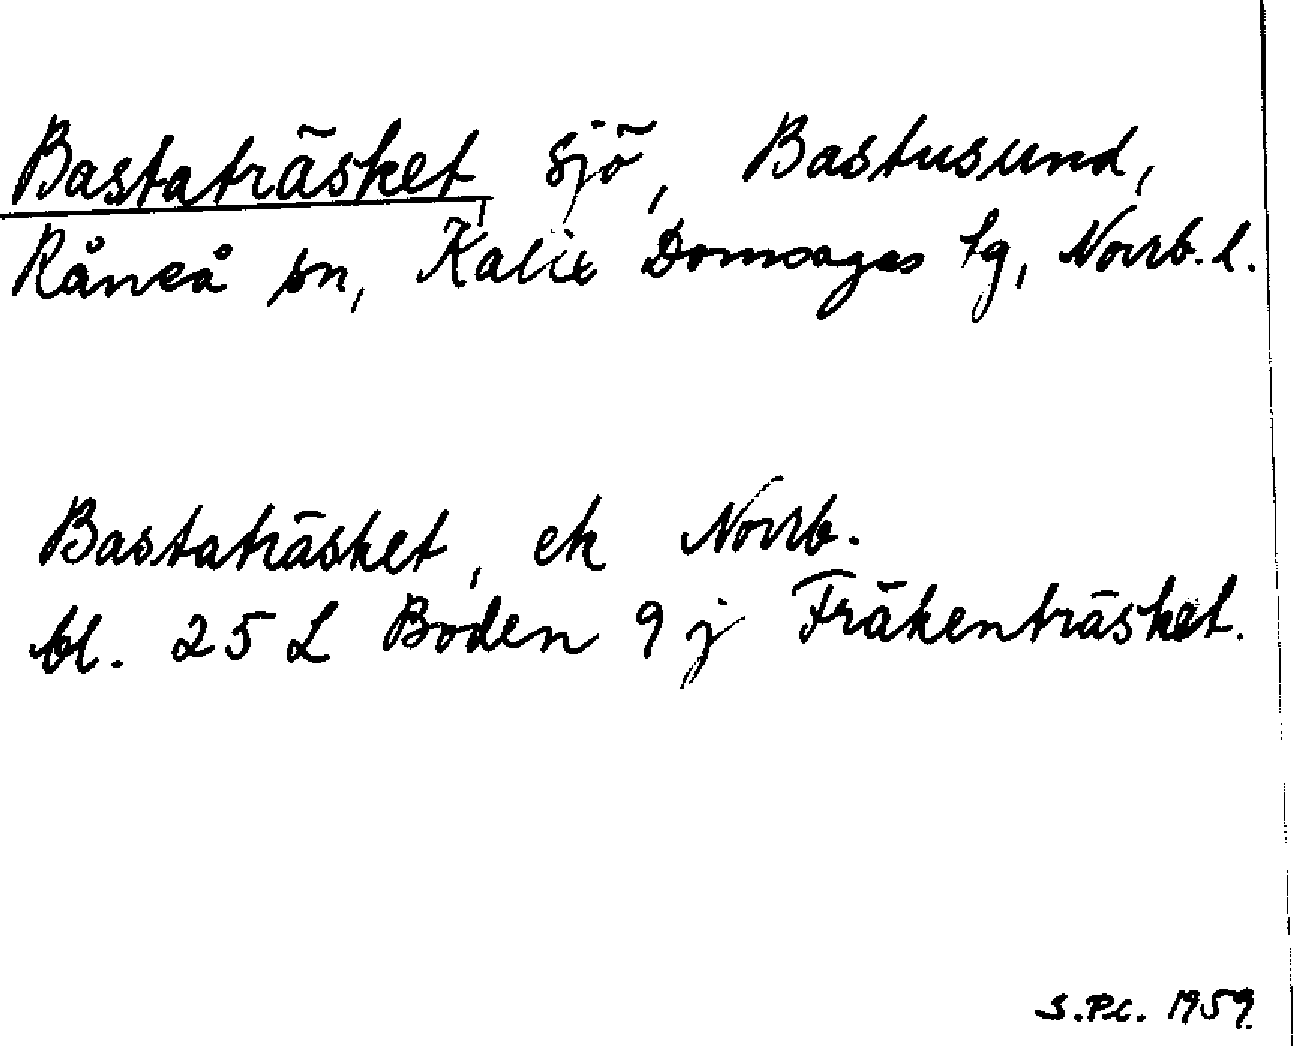 Bastaträsket, sjö, Bastusund,
Råneå sn, Kalix Domsagas tg, Norrb. l.
Bastaträsket, ek Norrb.
bl. 25 L Boden 9 j Fräkenträsket.
S.Pc. 1959